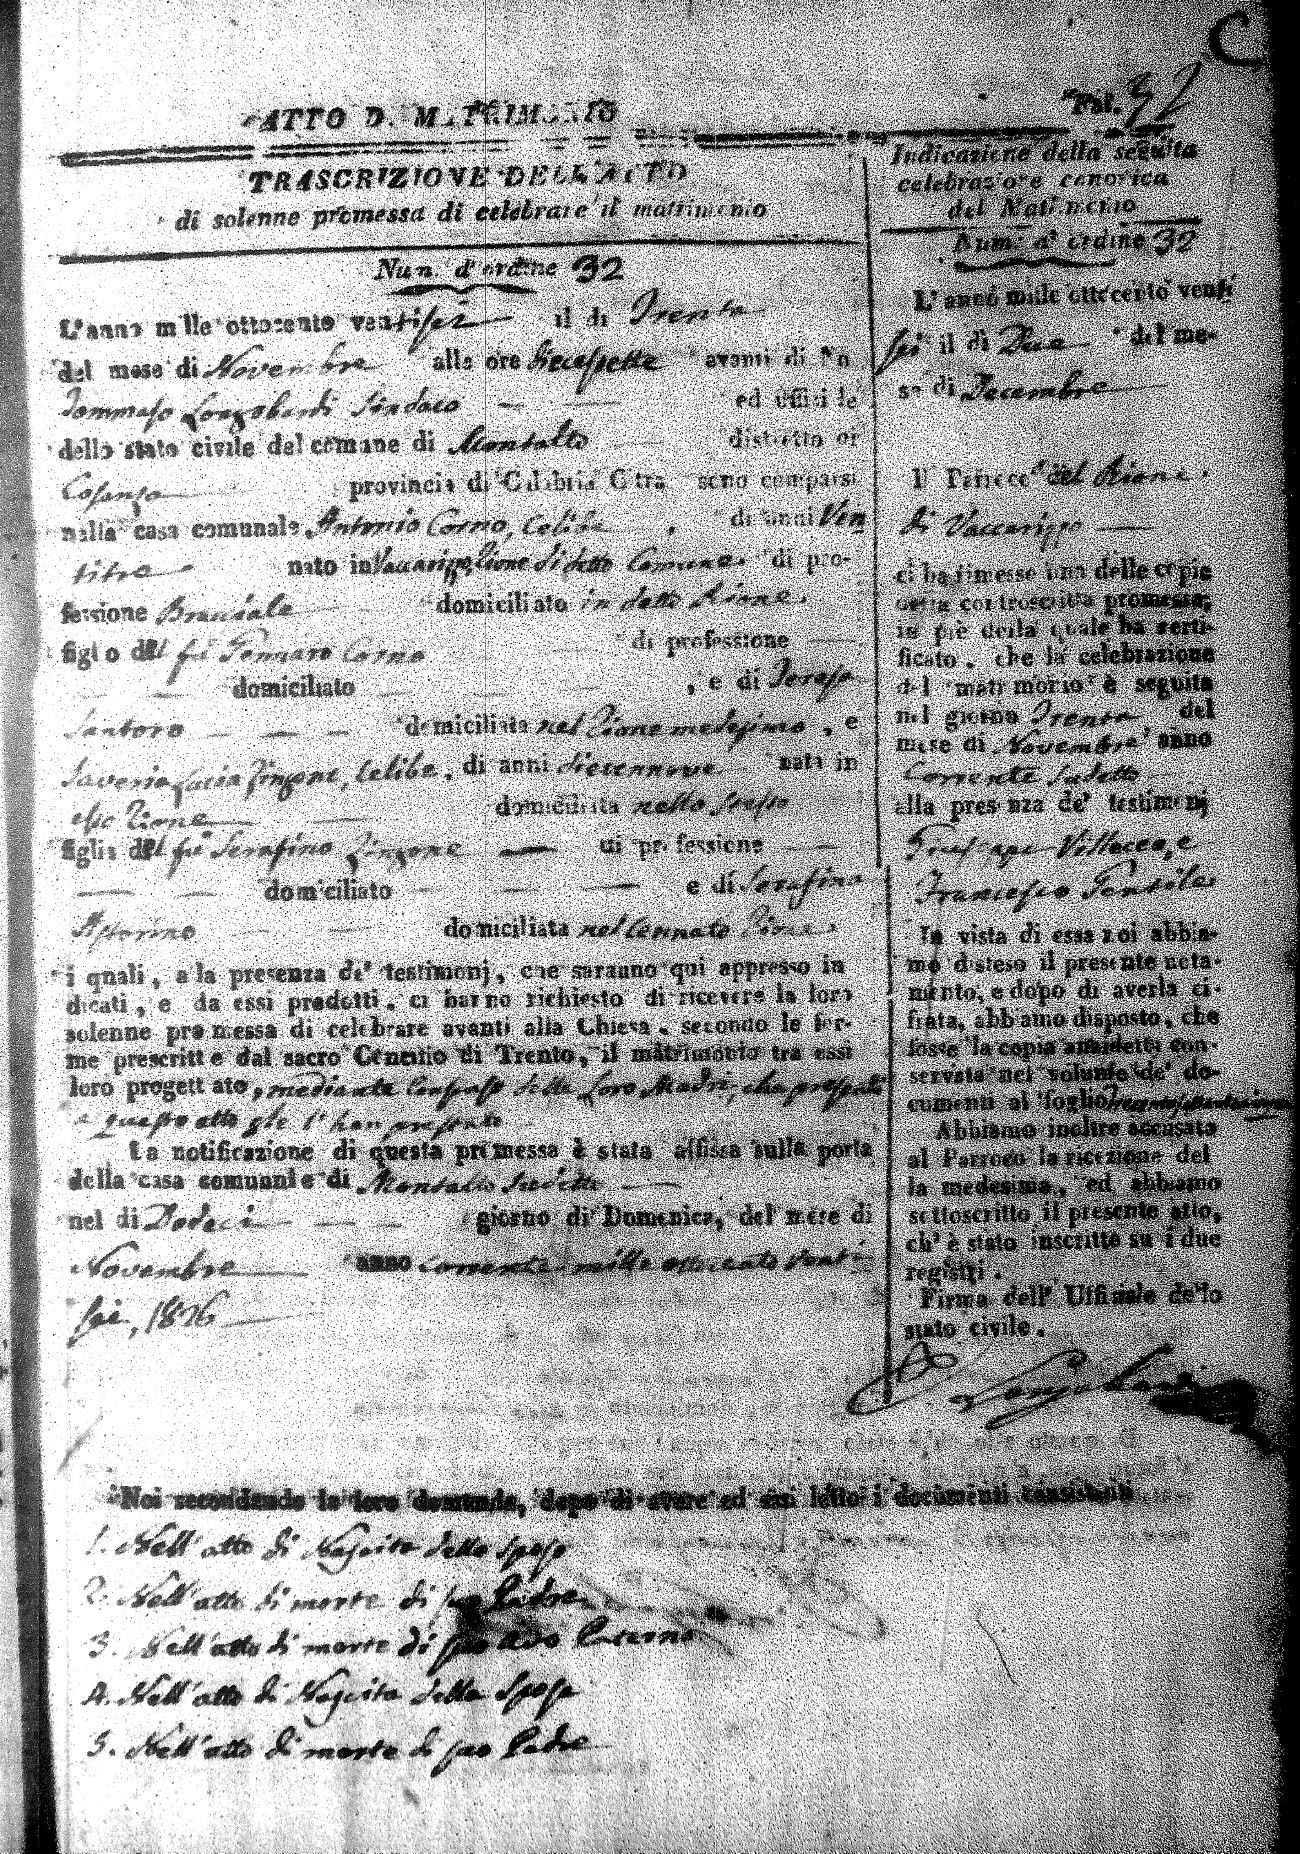 C
ATTO DI MATRIMONIO
Fol. 32
TRASCRIZIONE DELL'ATTO
di solenne promessa di celebrare il matrimonio
Num. d'ordine 32
L'anno mille ottocento ventisei il di Trenta
del mese di Novembre alle ore diecesette avanti di Noi
Tommaso Longobardi Sindaco ed uffiziale
dello stato civile del comune di Montalto distretto di
Cosenza provincia di Calabria Citra sono comparsi
nella casa comunale Antonio Corno, Celibe, di anni Ven
titre nato in Vaccarizzo, Rione di detto Comune, di pro-
fessione Bracciale domiciliato in detto Rione,
figlio del fu Gennaro Corno di professione
domiciliato , e di Teresa
Santoro domiciliata nel Rione medesimo, e
Saveria Lucia Zinzone, Celibe, di anni diecennove nata in
esso Rione domiciliata nello stesso
figlia del fu Serafino Zinzone di professione
domiciliato e di Serafina
domiciliata nel cennato Rione,
i quali, a la presenza de' testimonj, che saranno qui appresso in
dicati, e da essi prodotti, ci hanno richiesto di ricevere la loro
solenne promessa di celebrare avanti alla Chiesa, secondo le for-
me prescritte dal sacro Concilio di Trento, il matrimonio tra essi
loro progettato, mediante consenso delle loro Madri, che presenti
a questo atto gle l'han prestato
La notificazione di questa promessa è stata affissa sulla porta
della casa comunale di Montalto sudetto
nel di Dodeci giorno di Domenica, del mese di
Novembre anno corrente mille ottocento venti
sei, 1826
Indicazione della seguita
celebrazione canonica
del Matrimonio
Num. d'ordine 32
L'anno mille ottocento venti
sei il di Due del me-
se di Decembre
Il Parroco del Rione
di Vaccarizzo
ci ha rimesso una delle copie
della controscritta promessa;
in piè della quale ha certi-
ficato, che la celebrazione
del matrimonio è seguita
nel giorno Trenta del
mese di Novembre anno
Corrente sudetto
alla presenza de' testimonj
Vittocco, e
Francesco Gentile
In vista di essa noi abbia-
mo disteso il presente nota-
mento, e dopo di averla ci-
frata, abbiamo disposto, che
fosse la copia anzidetta con-
servata nel volume de' do-
cumenti al foglio
Abbiamo inoltre accusata
al Parroco la ricezione del
la medesima, ed abbiamo
sottoscritto il presente atto,
ch'è stato inscritto su i due
registri.
Firma dell' Uffiziale dello
stato civile.
Longobardi
Noi secondando la loro domanda, dopo di avere ad essi letto i documenti consistenti
1. Nell'atto di Nascita dello sposo
2. Nell'atto di morte di suo Padre
3. Nell'atto di morte di suo Avo Paterno
4. Nell'atto di Nascita della Sposa
5. Nell'atto di morte di suo Padre